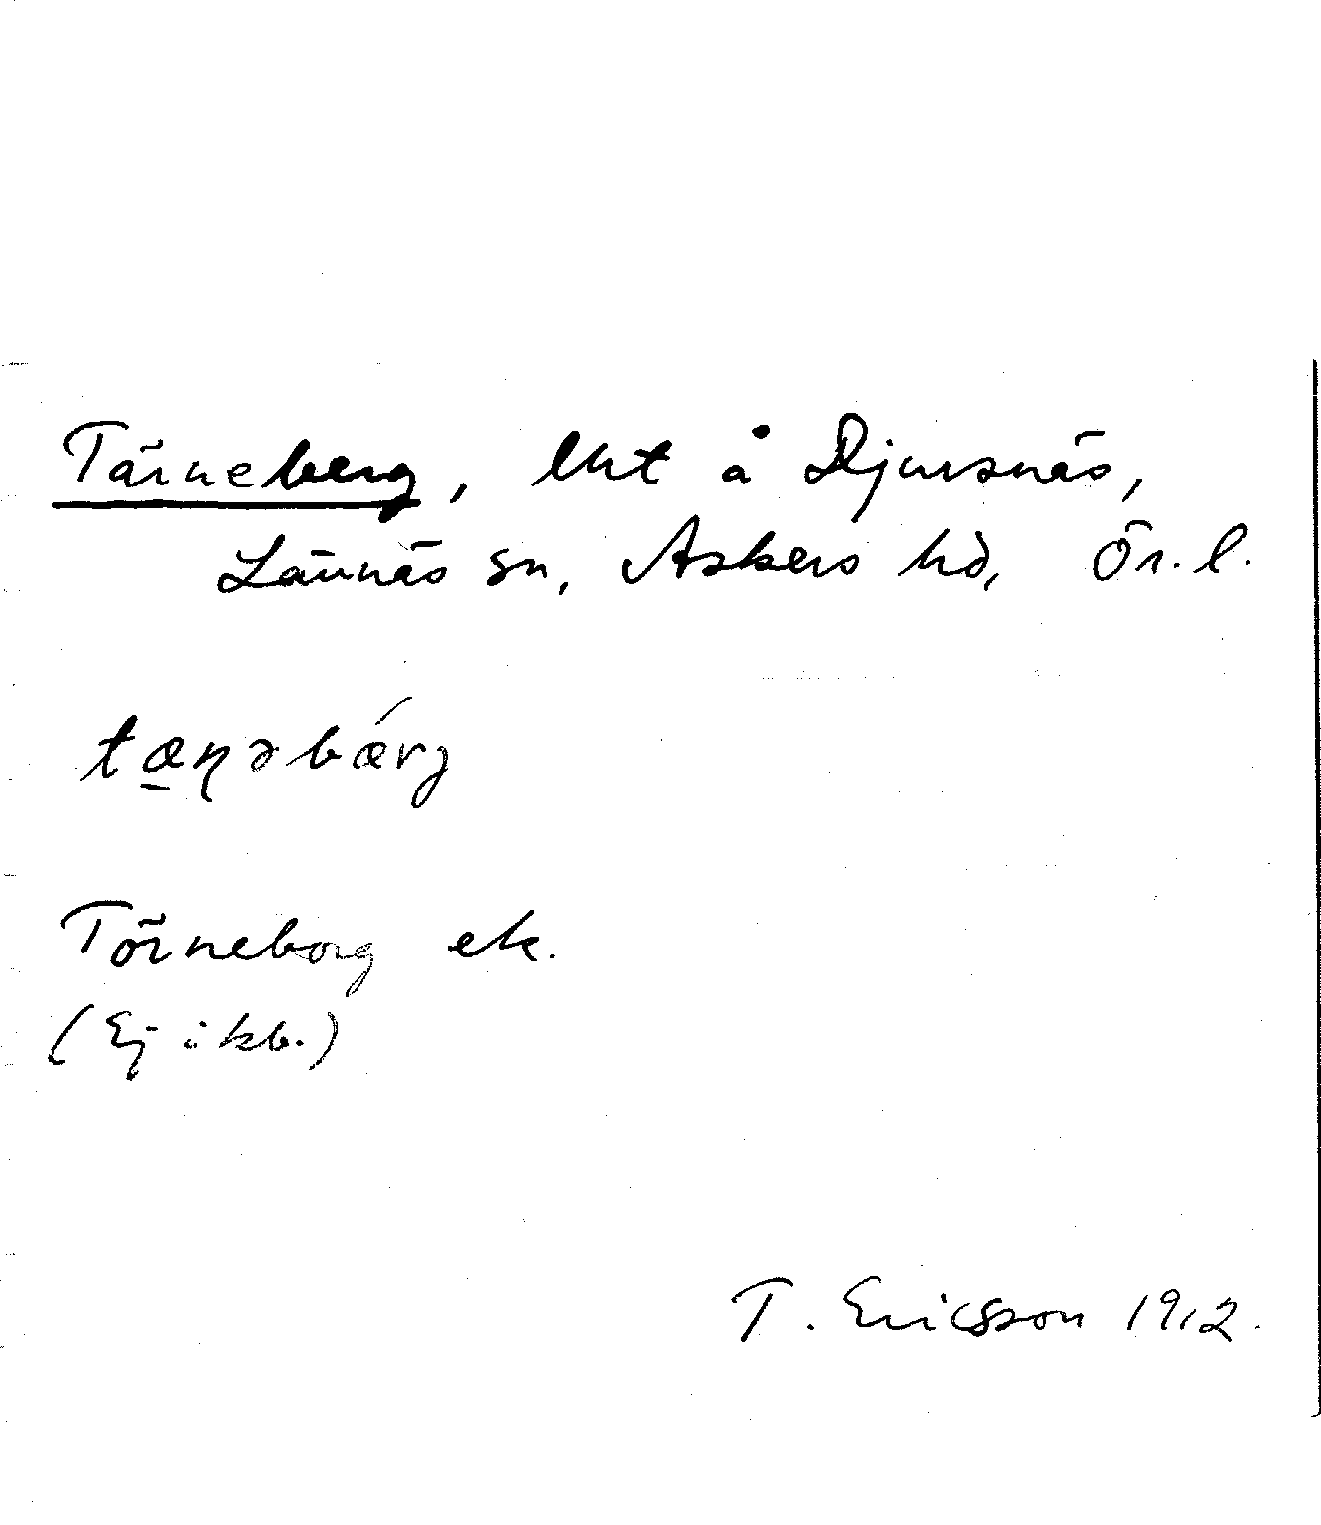 Tärneberg, lht å Djursnäs,
Lännäs sn, Askers hd, Ör. l.
tæṇəbǽrj
Törneborg ek.
(Ej i kb.)
T. Ericsson 1912.